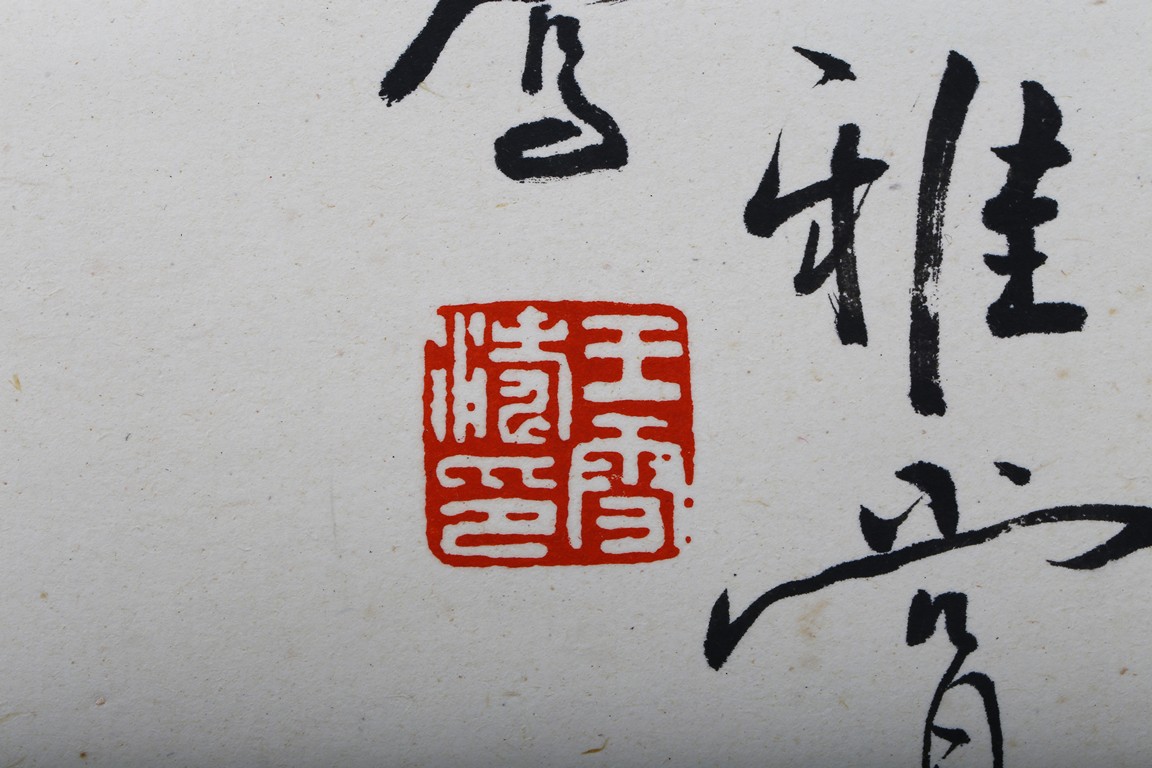 雅賞
王雪濤印